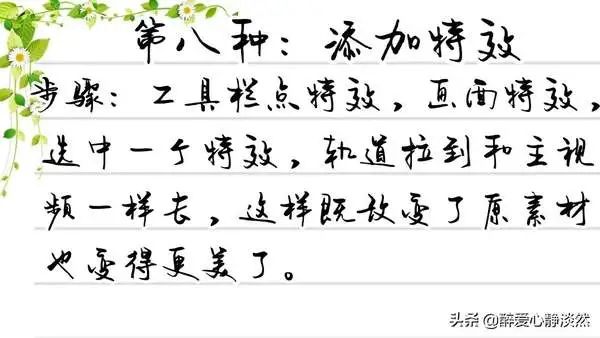 第八种：添加特效
步骤：工具栏点特效，画面特效，
选中一个特效，轨道拉到和主视
频一样长，这样既改变了原素材
也变得更美了。
头条 @醉爱心静淡然